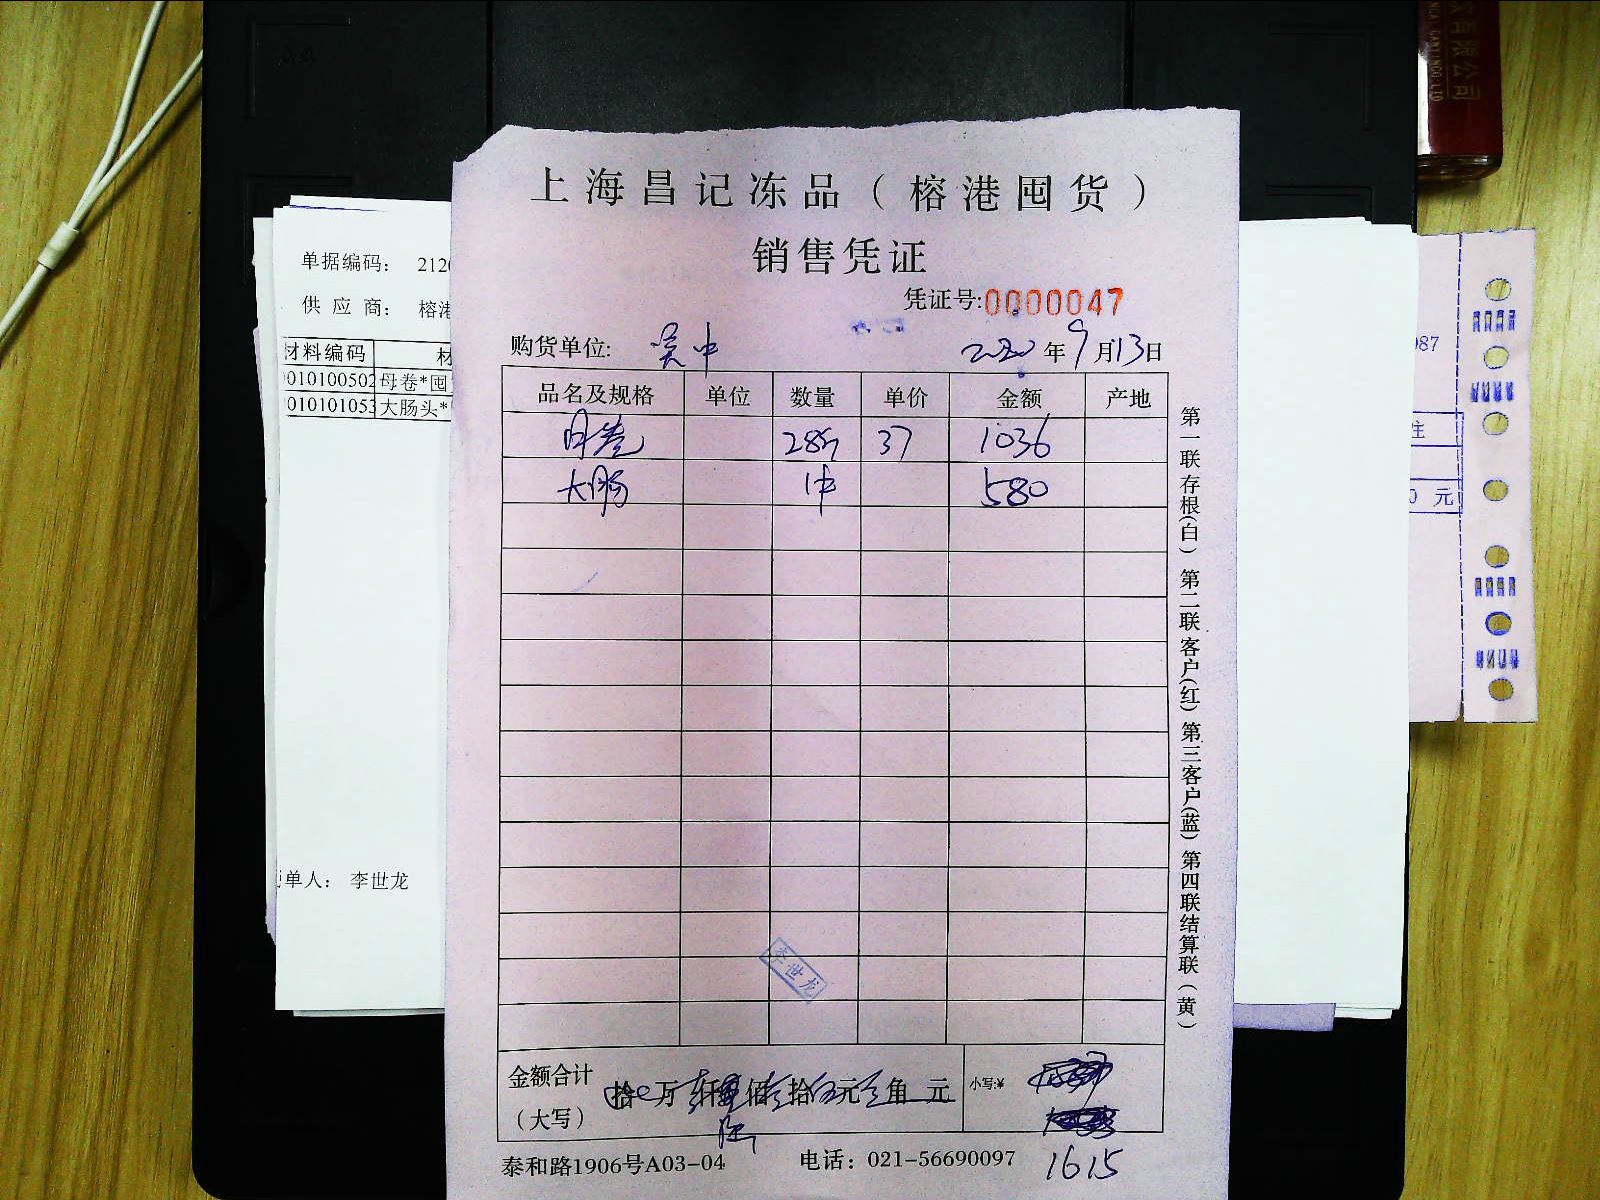 上海昌记冻品（榕港囤货）
销售凭证
凭证号:0000047
购货单位: 吴中 2020年9月13日
品名及规格 单位 数量 单价 金额 产地
月卷 28斤 37 1036
大肠 1件 580
金额合计（大写） 拾 万 仟 佰 拾 元 角 元 小写:¥
1615
泰和路1906号A03-04 电话：021-56690097
第一联存根(白)第二联客户(红)第三客户(蓝)第四联结算联(黄)
李世龙
单据编码： 212
供 应 商： 榕港
材料编码 材
010100502 母卷*囤
010101053 大肠头*
单人： 李世龙
987
注
0 元
有限公司